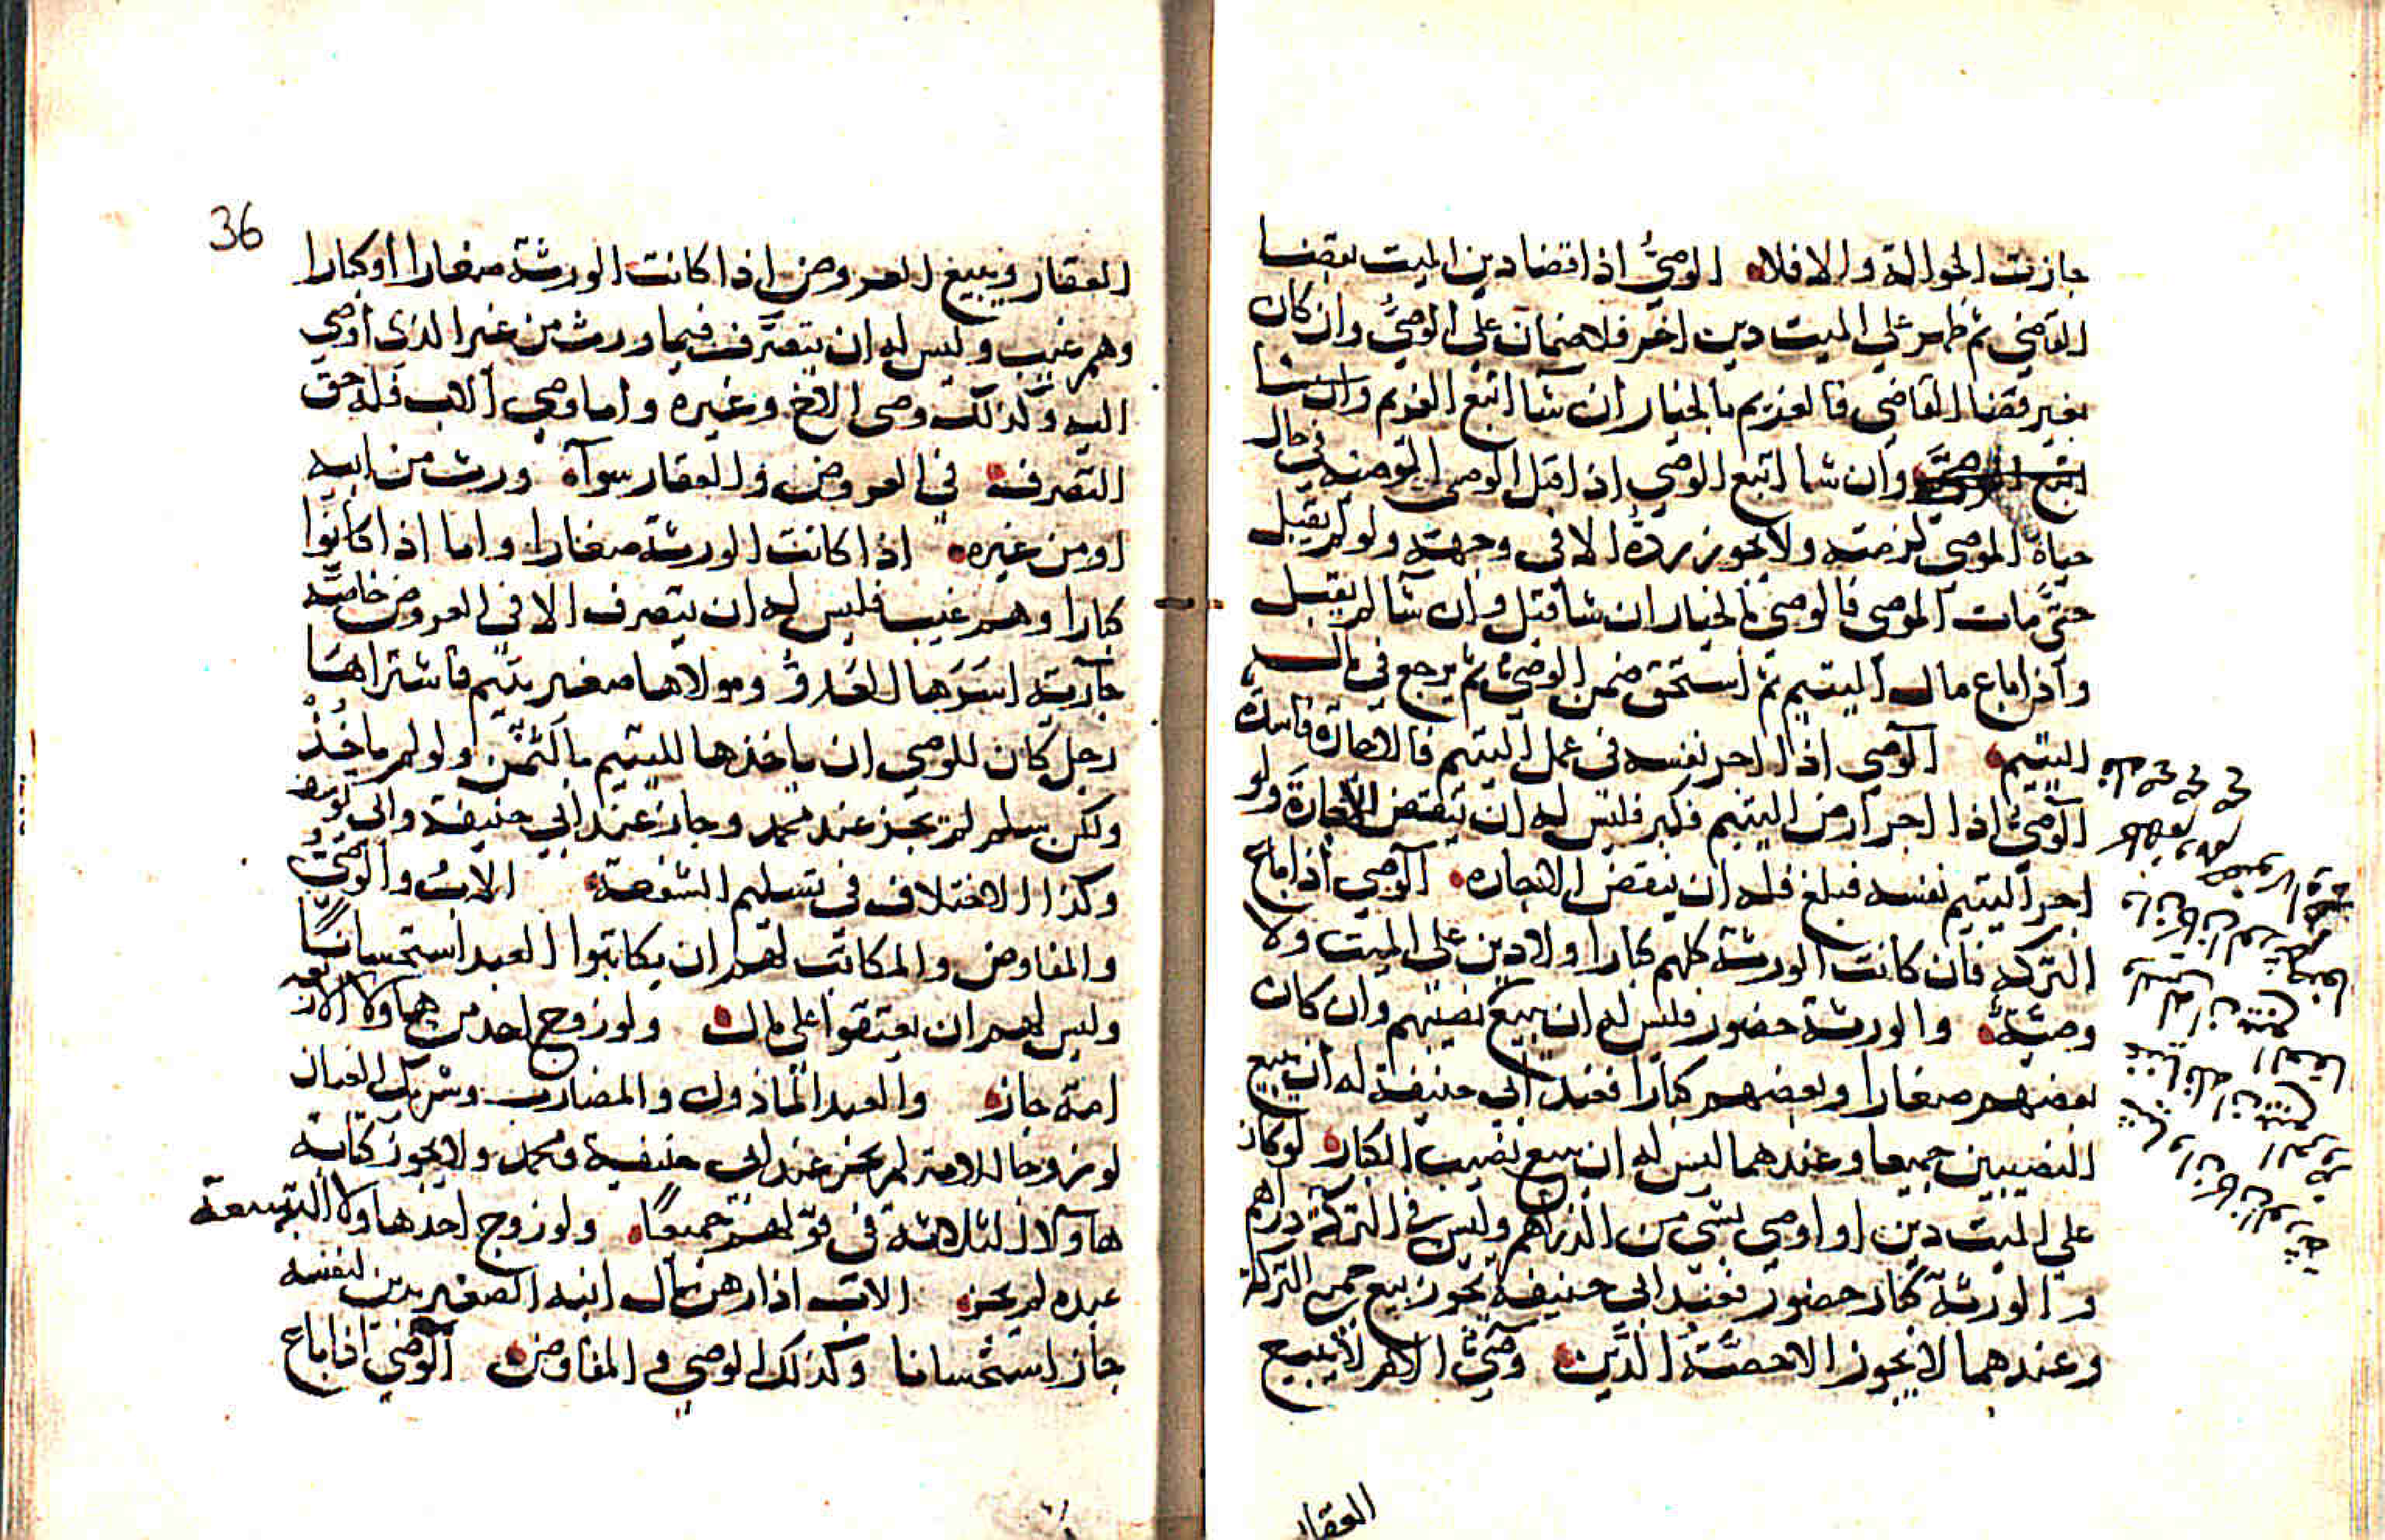 جازت الحوالة والا فلا الوصيُّ اذا قضا دين الميت بقضا
القاضي ثم ظهر علي الميت دين اخر فلا ضمان علي الوصيُّ وان كان
بغير قضا القاضي فالغريم بالخيار ان شا اتبع الغريم وان شا
اتبع وان شا اتبع الوصي اذا قبل الوصى الوصيه في حال
حياة الموصي لزمته ولا يجوز ردهُ الا في وجهه ولو لم يقبل
حتيَّ مات الموصي فالوصي بالخيار ان شا قبل وان شا لم يقبل
واذا باع مال اليتيم ثم استحق ضمن الوصيُّ ثم يرجع في مال
اليتيم الوصي اذا اجر نفسه في عمل اليتيم فالاجارة فاسدة
الوصيُّ اذا اجر ارض اليتيم فكبر فليس له ان ينقض الاجارة ولو
اجر اليتيم نفسه فبلغ فله ان ينقض الاجاره الوصي اذا باع
التركه فان كانت الورثة كلهم كبارا ولا دين علي الميت ولا
وصيَّة والورثة حضور فليس له ان يبيع نصيبهم وان كان
بعضهم صغارا وبعضهم كبارا فعند ابي حنيفة له ان يبيع
النصيبين جميعا وعندهما ليس له ان يبيع نصيب الكبار لو كان
علي الميت دين او اوصي بشي من الدراهم وليس في التركة دراهم
والورثة كبار حضور فعند ابي حنيفة يجوز بيع جميع التركة
وعندهما لا يجوز الا حصَّةُ الدَّين وصيُّ الام لا يبيع
العقار
36
العقار ويبيع العروض اذا كانت الورثة صغارا او كبارا
وهم غيب وليس له ان يتصرف فيما ورث من غير الذى اوصي
اليه وكذلك وصى الاخ وغيره واما وصي الاب فله حق
التصرف في العروض والعقار سوآء ورث من ابيه
او من غيره اذا كانت الورثة صغارا واما اذا كانوا
كبارا وهم غيب فليس له ان يتصرف الا في العروض خاصَّه
جاريه اسَرَها العَدوُّ ومولاها صغير يتيم فاشتراها
رجل كان للوصي ان ياخذها لليتيم بالثمن ولو لم ياخُذْ
ولكن سلم لم يجز عند محمد وجاز عند ابي حنيفة وابي يوسف
وكذا الاختلاف في تسليم الشفعة الابُ والوصيُّ
والمفاوض والمكاتب لهم ان يكاتبوا العبد استحساناً
وليس لهم ان يعتقوا على مال ولو زوج احد من هاولا الاربعه
امة جاز والعبد الماذون والمضارب وشريك العنان
لو زوجا الامة لم يجز عند ابي حنيفة ومحمد ولا يجوز كتابة
هاولا الثلاثة في قولهم جميعًا ولو زوج احد هاولا السبعة
عبده لم يجز الاب اذا رهن مال ابنه الصغير بدين لنفسه
جاز استحسانا وكذلك الوصي و المفاوض الوصي اذا باع